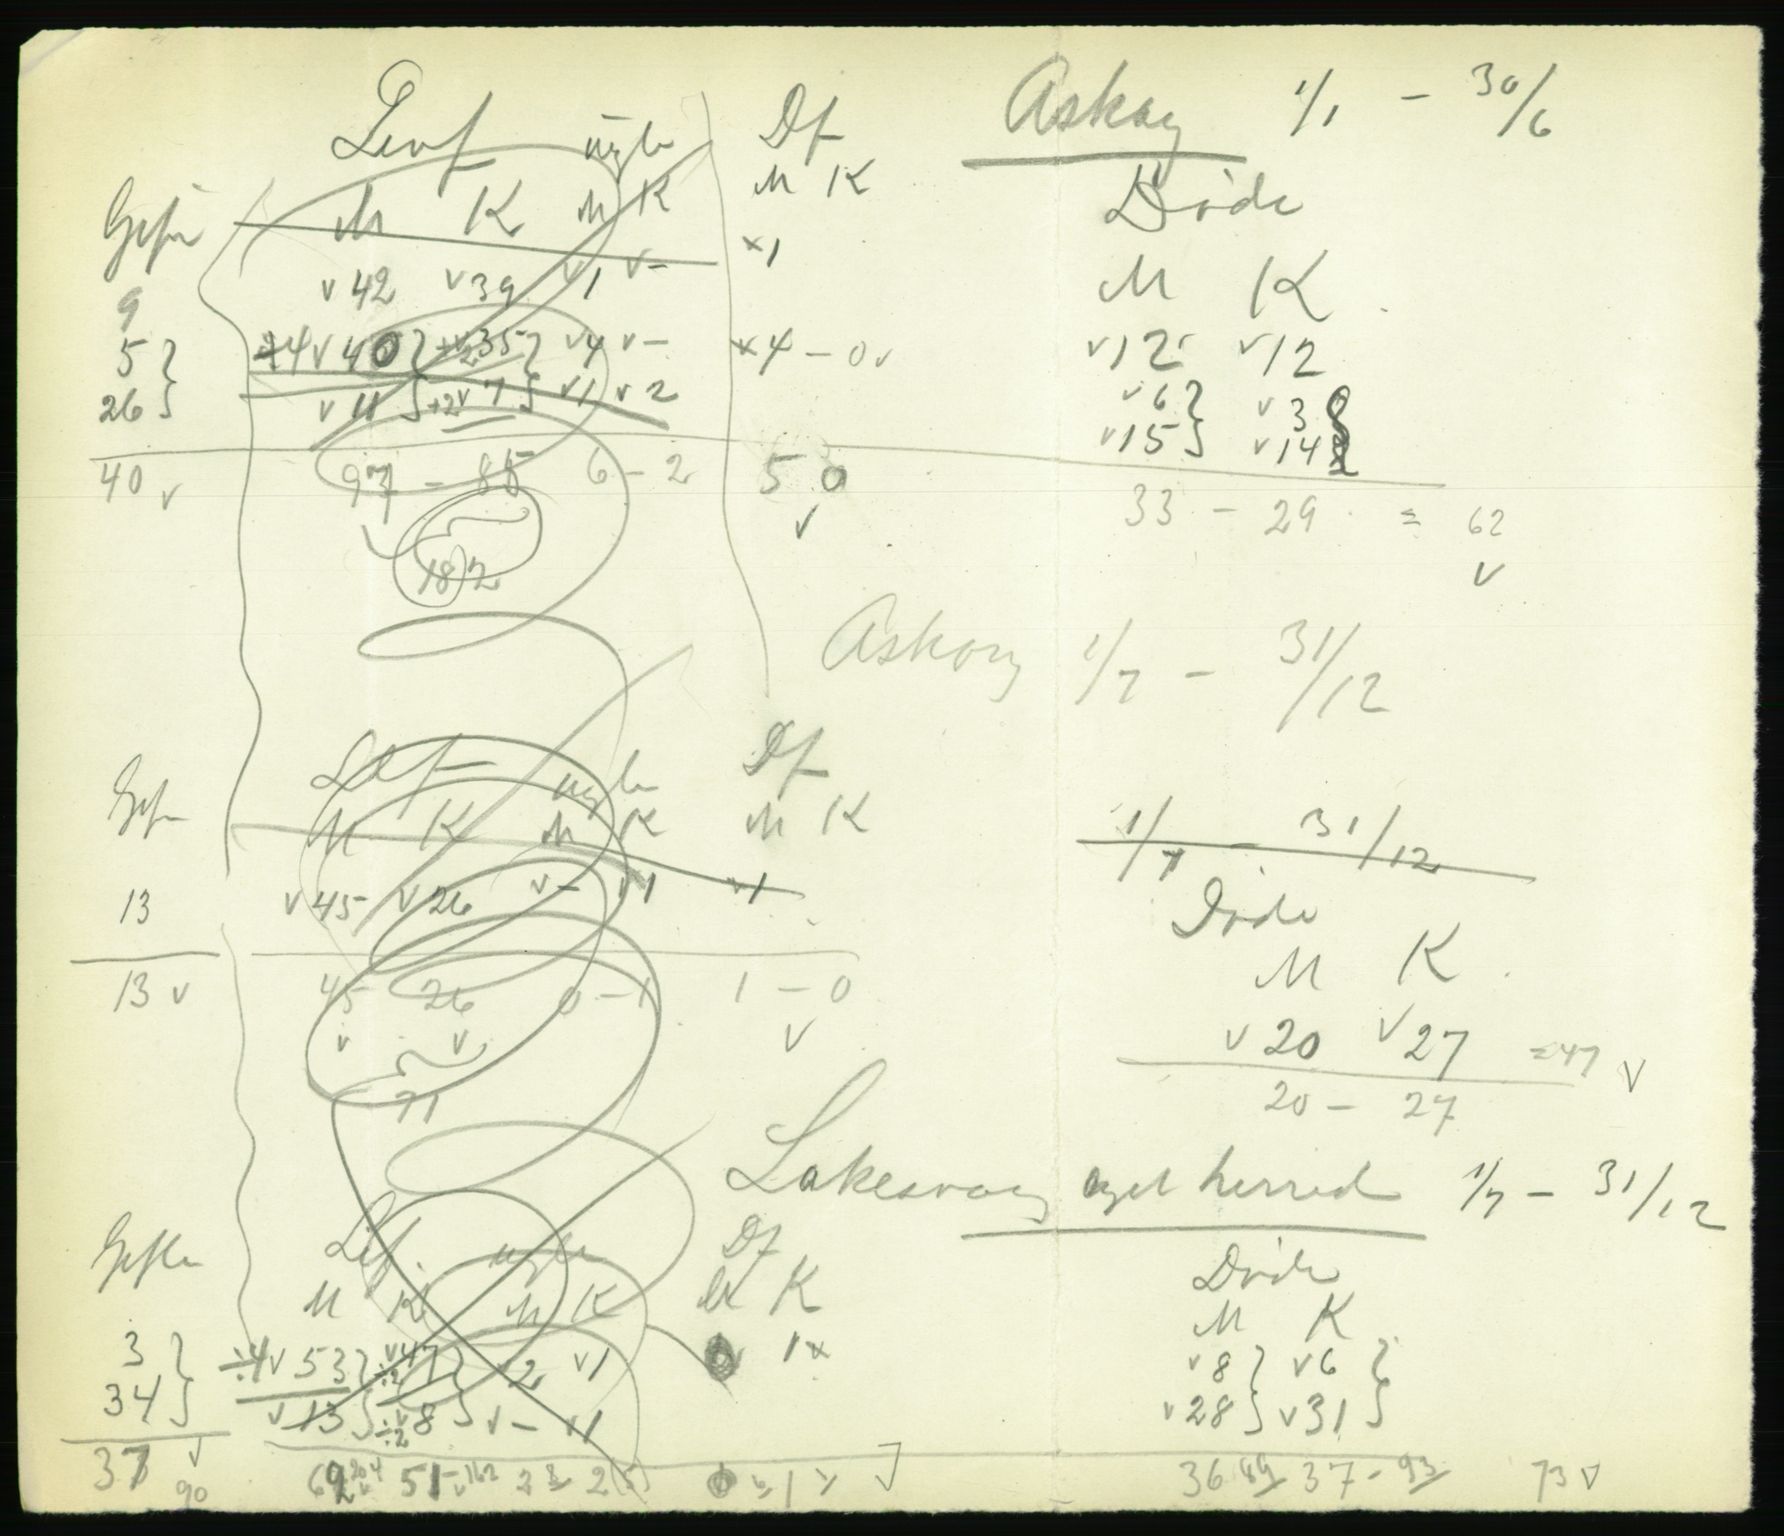 Askøy 1/1 - 30/6
Levf Df
Døde
M K M K M K
Gifte
v 42 v 39 v 1 v - x1
M K
9
5 } v 40 } v 35 } v 4 v - x 4 - 0 v
v 12 v 12
26 } v 11 } v 7 } v 1 v 2
v 6 } v 3 }
v 15 } v 14 }
40 v 97 - 85 6 - 2 5 0
v
33 - 29 = 62
v
182
Askøy 1/7 - 31/12
Df
M K M K M K
1/7 - 31/12
Døde
13 v 45 v 26 v - v 1 v 1
M K
13 v 45 26 0 - 1 1 - 0
v v v
v 20 v 27 = 47 v
71
20 - 27
Laksevåg eget herred 1/7 - 31/12
Df
Døde
M K M K K
M K
3 } ÷4 v 53 } ÷2 v 47 } v 2 v 1 0 1x
v 8 } v 6 }
34 } v 13 } ÷2 v 8 } v - v 1
v 28 } v 31 }
37 v 51 2 2 0 1
36 89 37 - 93 73 v
90